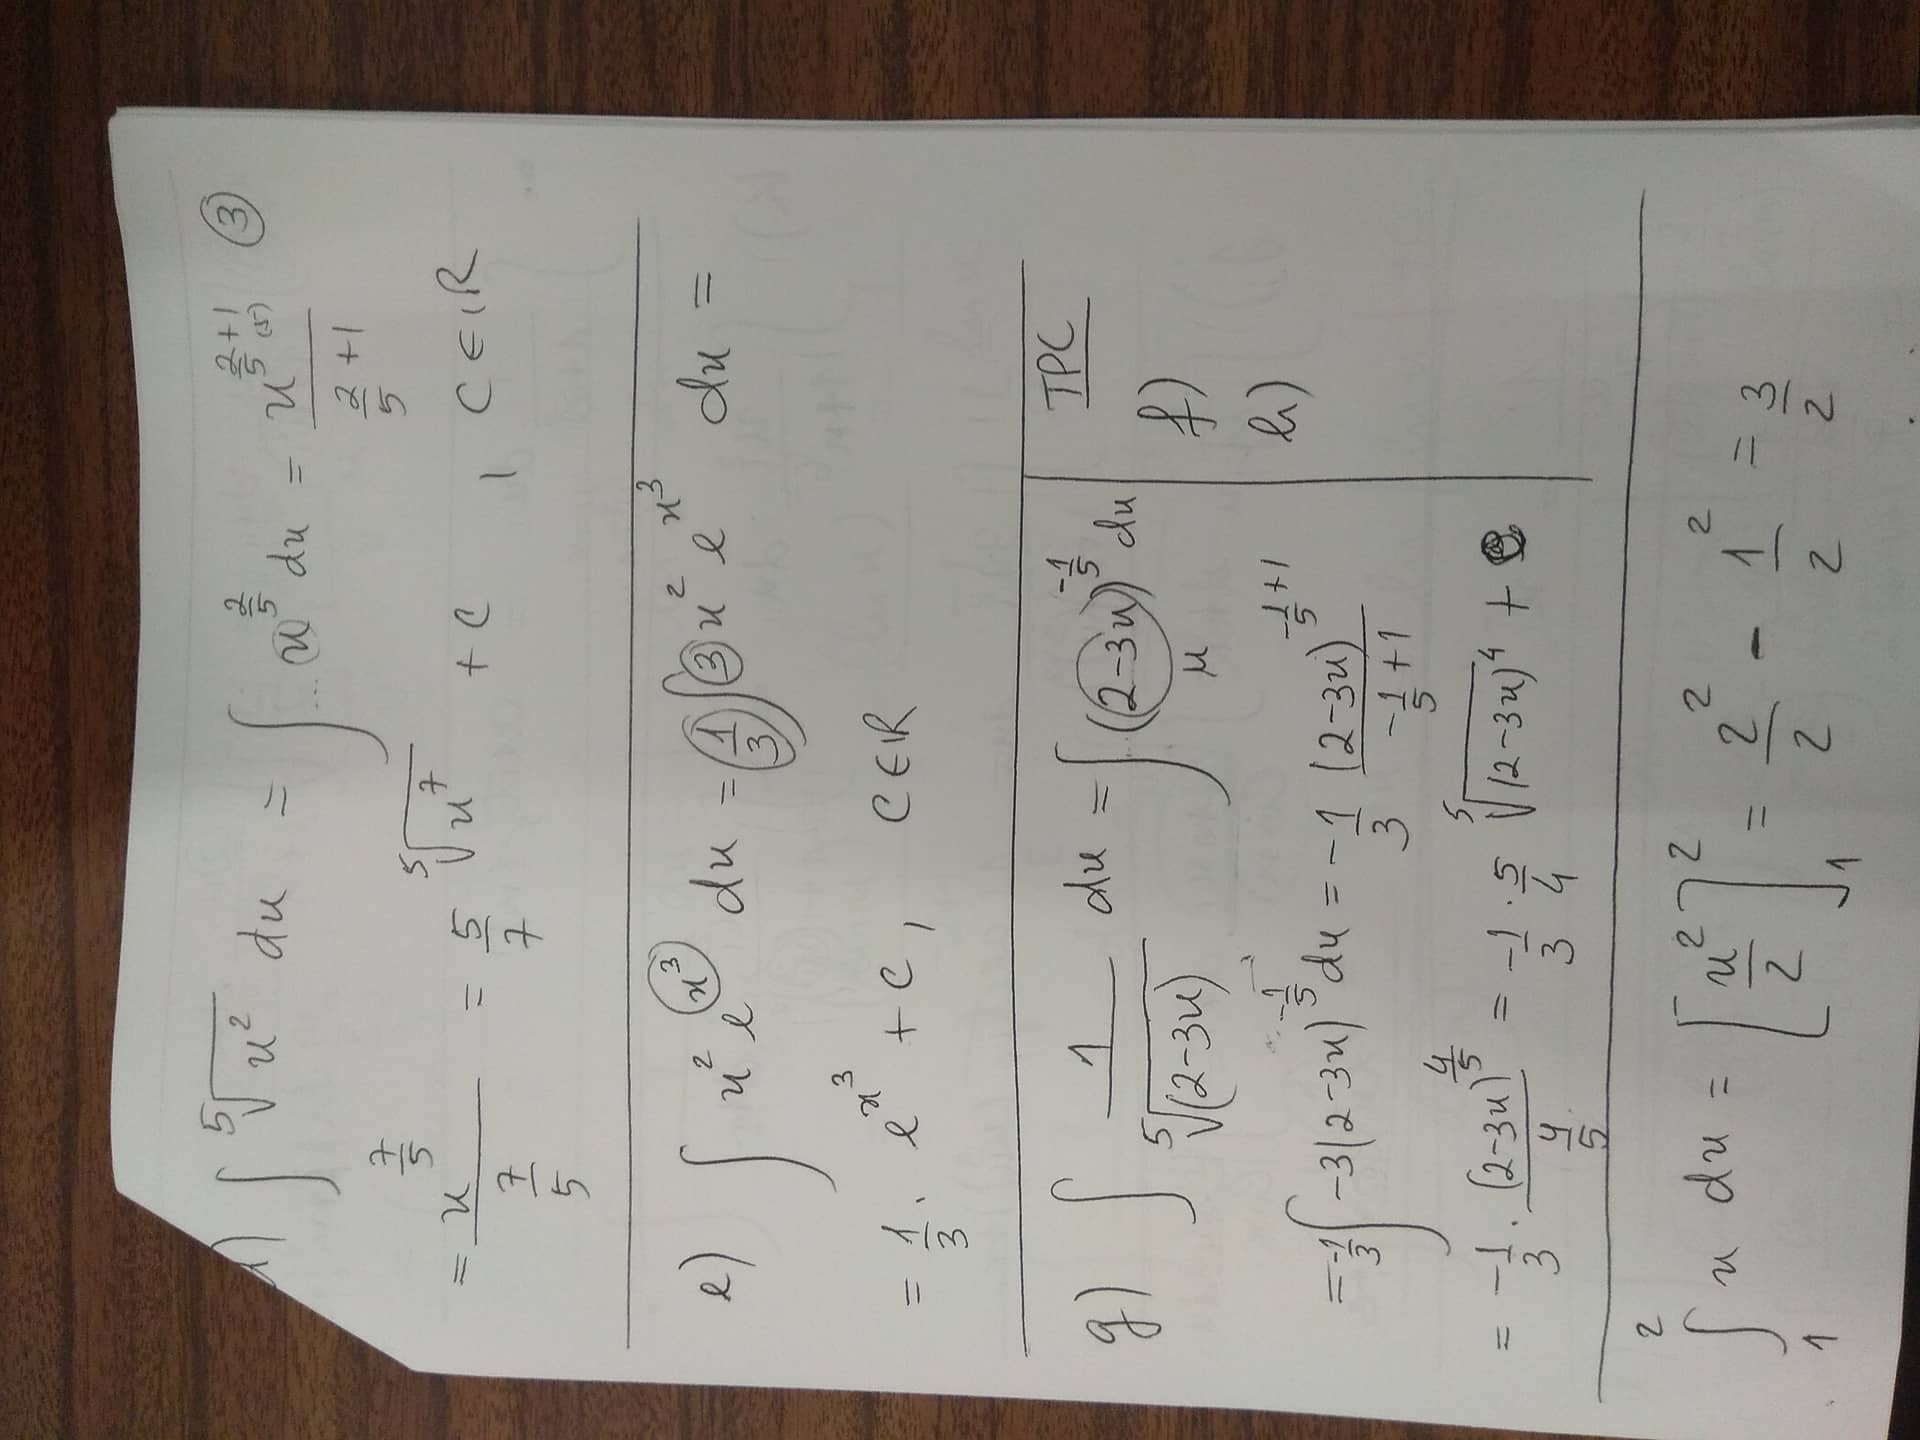 d) ∫ ⁵√x² dx = ∫ x^(2/5) dx = x^(2/5 + 1) (5) / (2/5 + 1) ③
= x^(7/5) / (7/5) = 5/7 ⁵√x⁷ + C , C ∈ ℝ
e) ∫ x² e^(x³) dx = 1/3 ∫ 3 x² e^(x³) dx =
= 1/3 · e^(x³) + C, C ∈ ℝ
g) ∫ 1 / ⁵√(2-3x) dx = ∫ (2-3x)^(-1/5) dx
u
= -1/3 ∫ -3(2-3x)^(-1/5) dx = -1/3 (2-3x)^(-1/5 + 1) / (-1/5 + 1)
= -1/3 · (2-3x)^(4/5) / (4/5) = -1/3 · 5/4 ⁵√(2-3x)⁴ + C
TPC
f)
h)
∫₁² x dx = [x²/2]₁² = 2²/2 - 1²/2 = 3/2